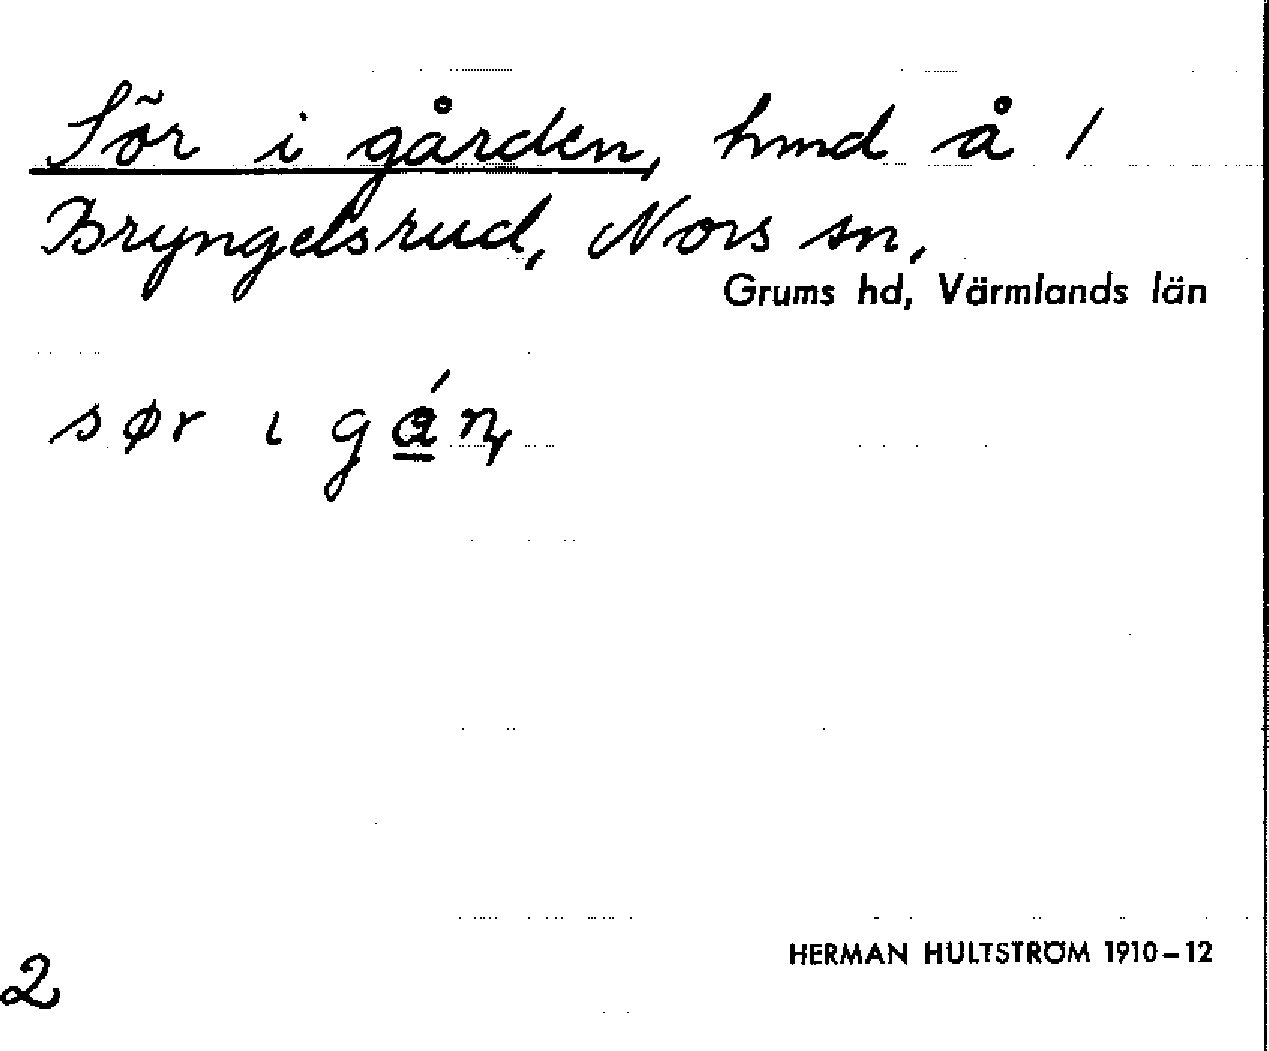 Sör i gården, hmd å 1
Bryngelsrud, Nors sn,
Grums hd, Värmlands län
sør ɩ gá̱ṇ
HERMAN HULTSTRÖM 1910-12
2